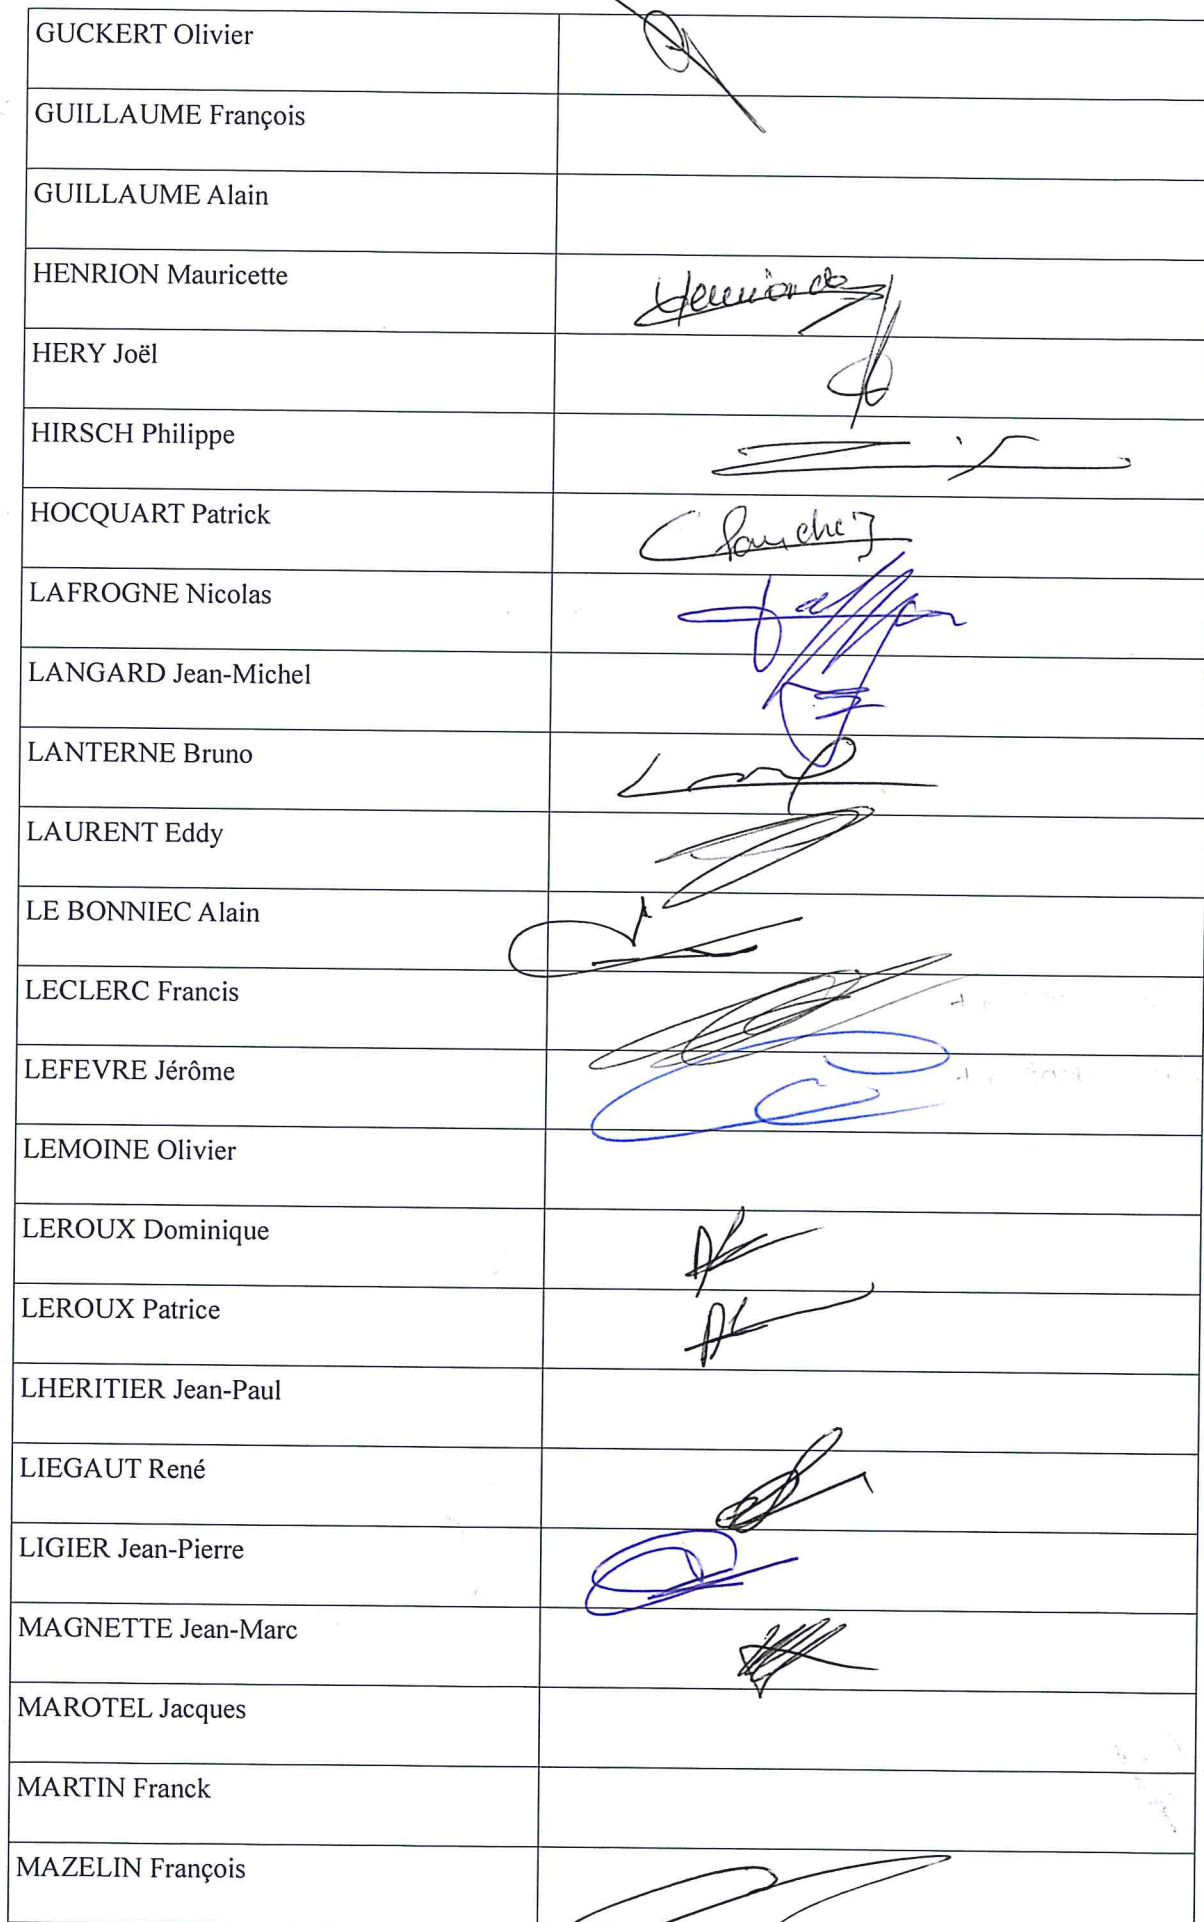 GUCKERT Olivier
GUILLAUME François
GUILLAUME Alain
HENRION Mauricette
HERY Joël
HIRSCH Philippe
HOCQUART Patrick
LAFROGNE Nicolas
LANGARD Jean-Michel
LANTERNE Bruno
LAURENT Eddy
LE BONNIEC Alain
LECLERC Francis
LEFEVRE Jérôme
LEMOINE Olivier
LEROUX Dominique
LEROUX Patrice
LHERITIER Jean-Paul
LIEGAUT René
LIGIER Jean-Pierre
MAGNETTE Jean-Marc
MAROTEL Jacques
MARTIN Franck
MAZELIN François